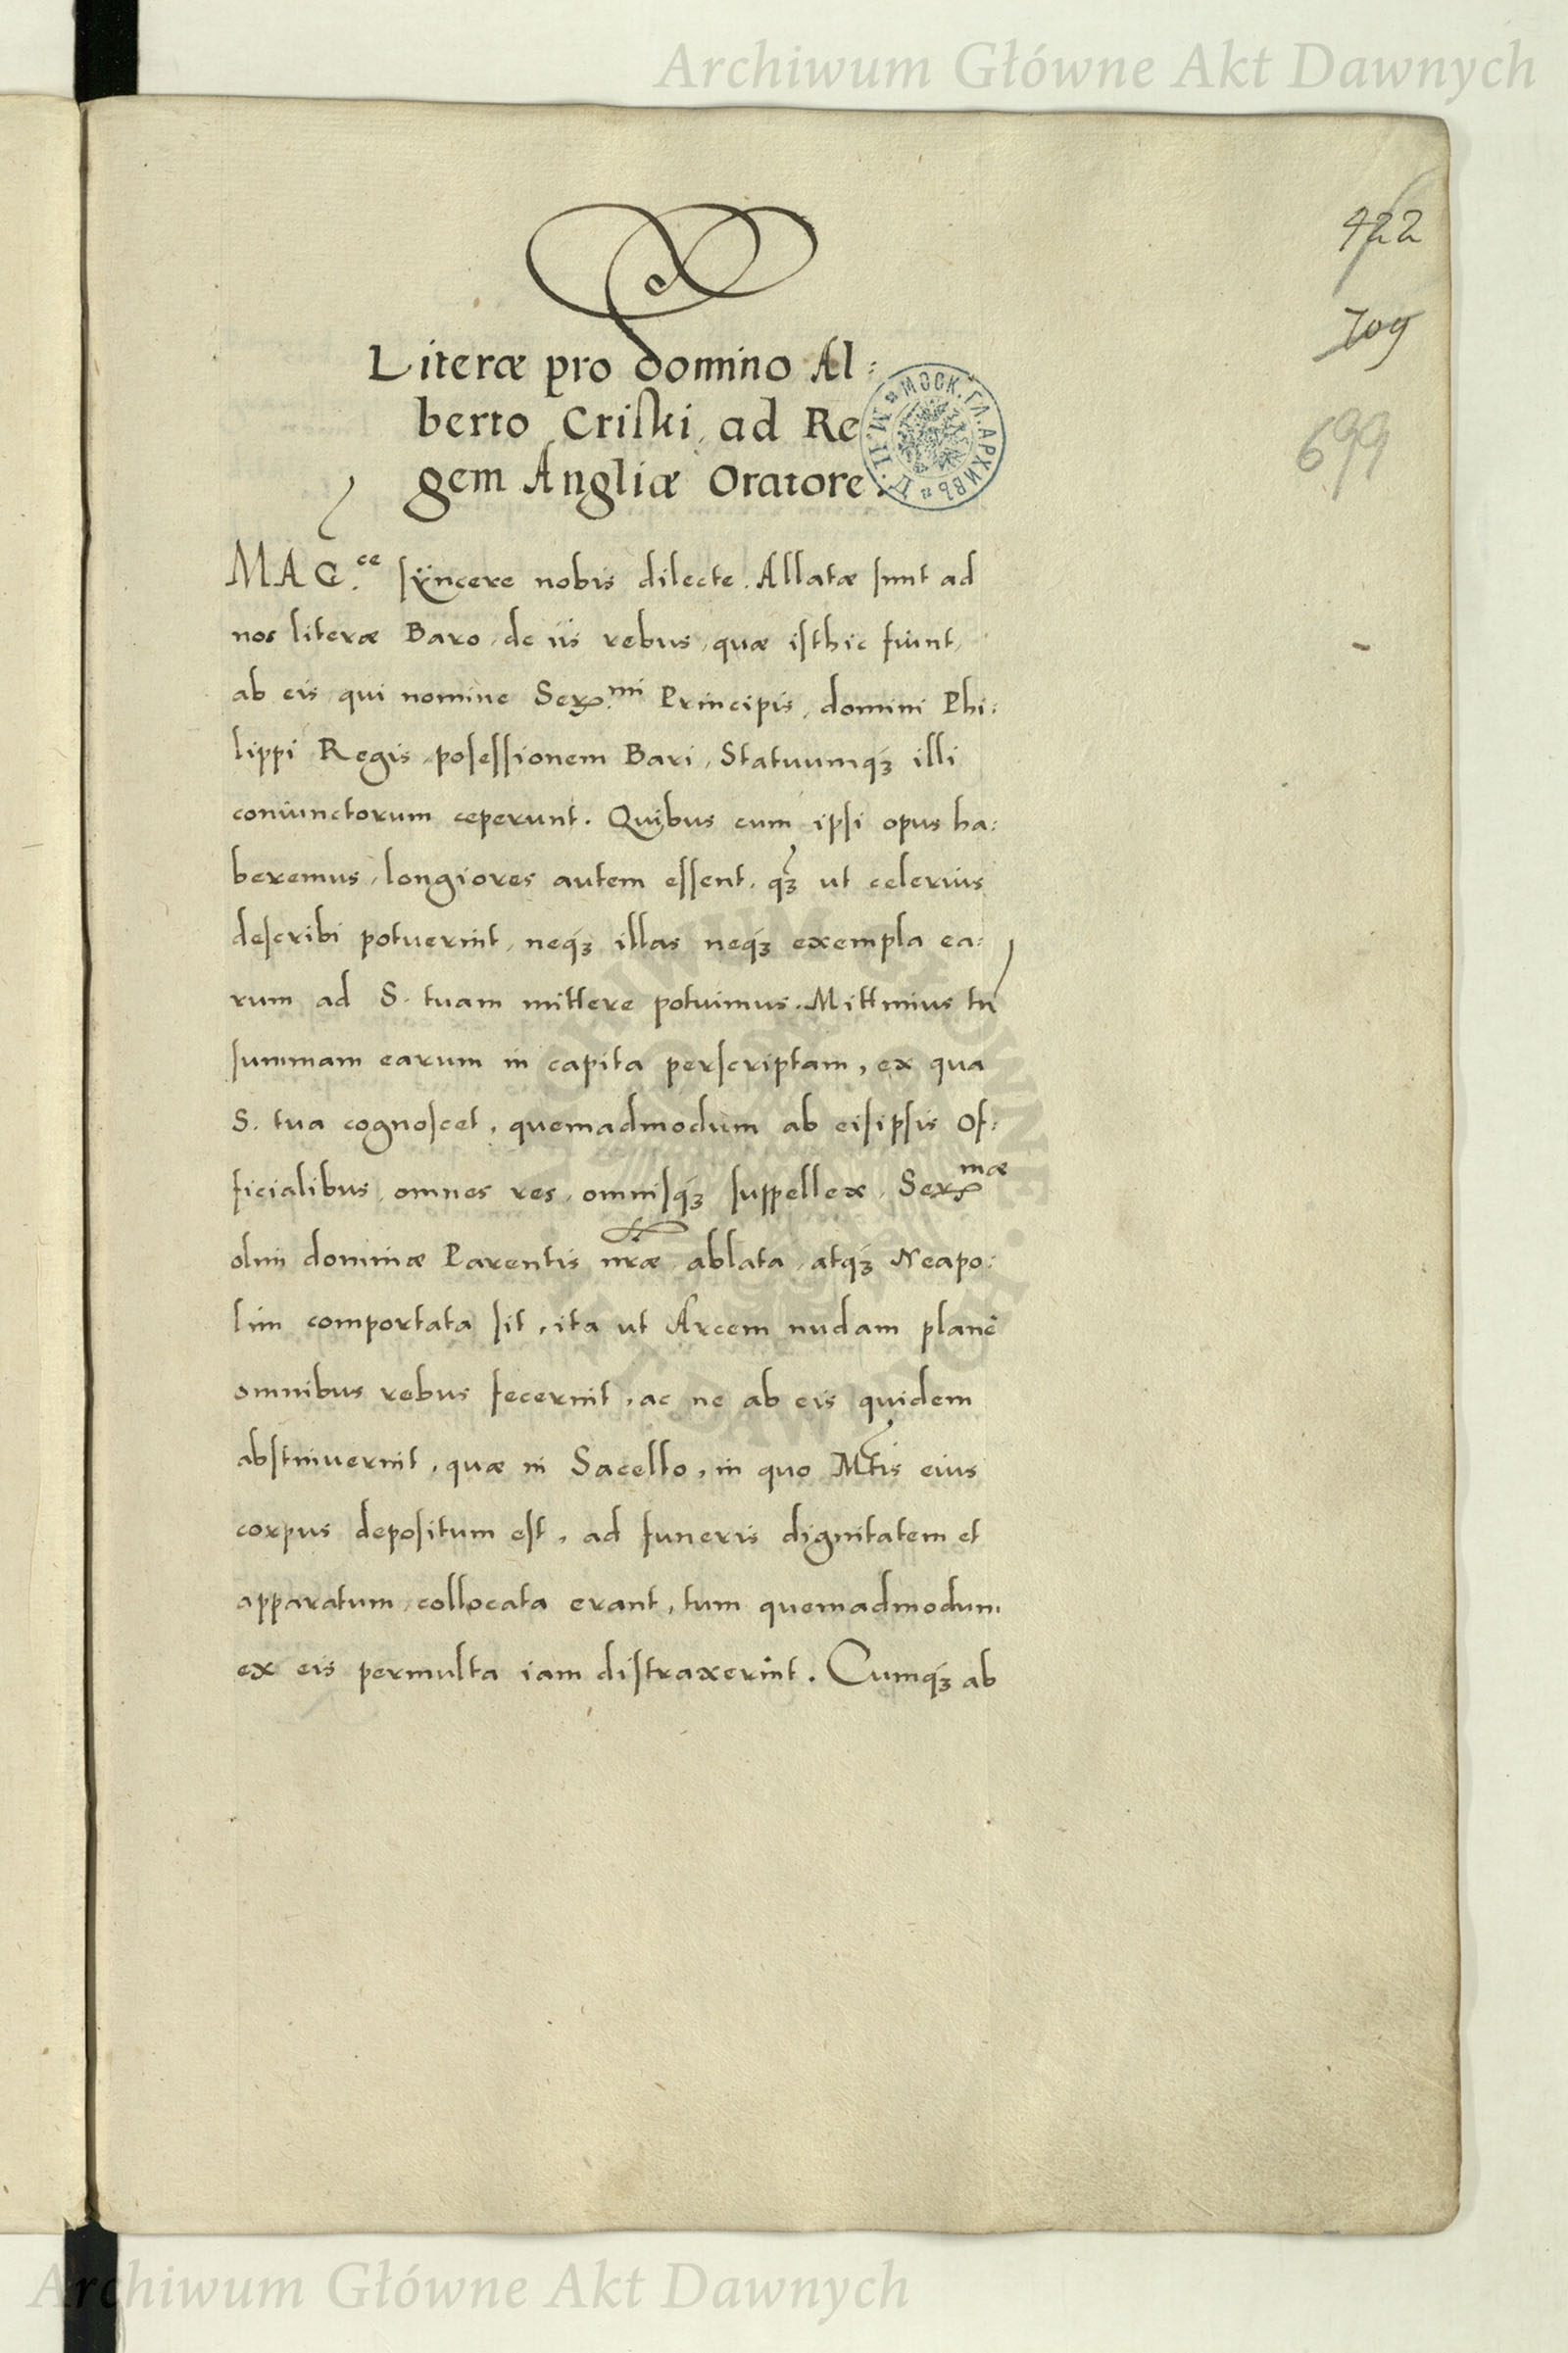 Archiwum Główne Akt Dawnych
422
709
699
Literæ pro domino Al:
berto Criski, ad Re
gem Angliæ Oratore.
МОСК. ГЛ. АРХИВЪ
MAG.ce sÿncere nobis dilecte. Allatæ sunt ad
nos literæ Baro, de iis rebus, quæ isthic fiunt,
ab eis qui nomine Ser.mi Principis, domini Phi:
lippi Regis, posessionem Bari, Statuumq3 illi
coniunctorum ceperunt. Quibus cum ipsi opus ha:
beremus, longiores autem essent, q3 ut celerius
describi potuerint, neq3 illas neq3 exempla ea:
rum ad S. tuam mittere potuimus. Mittimus tn
summam earum in capita perscriptam, ex qua
S. tua cognoscet, quemadmodum ab eisipsis Of:
ficialibus, omnes res, omnisq3 suppellex, Ser.mæ
olim dominæ Parentis nræ, ablata, atq3 Neapo:
lim comportata sit, ita ut Arcem nudam planè
omnibus rebus fecerint, ac ne ab eis quidem
abstinuerint, quæ in Sacello, in quo Mtis eius
corpus depositum est, ad funeris dignitatem et
apparatum, collocata erant, tum quemadmodum
ex eis permulta iam distraxerint. Cumq3 ab
Archiwum Główne Akt Dawnych